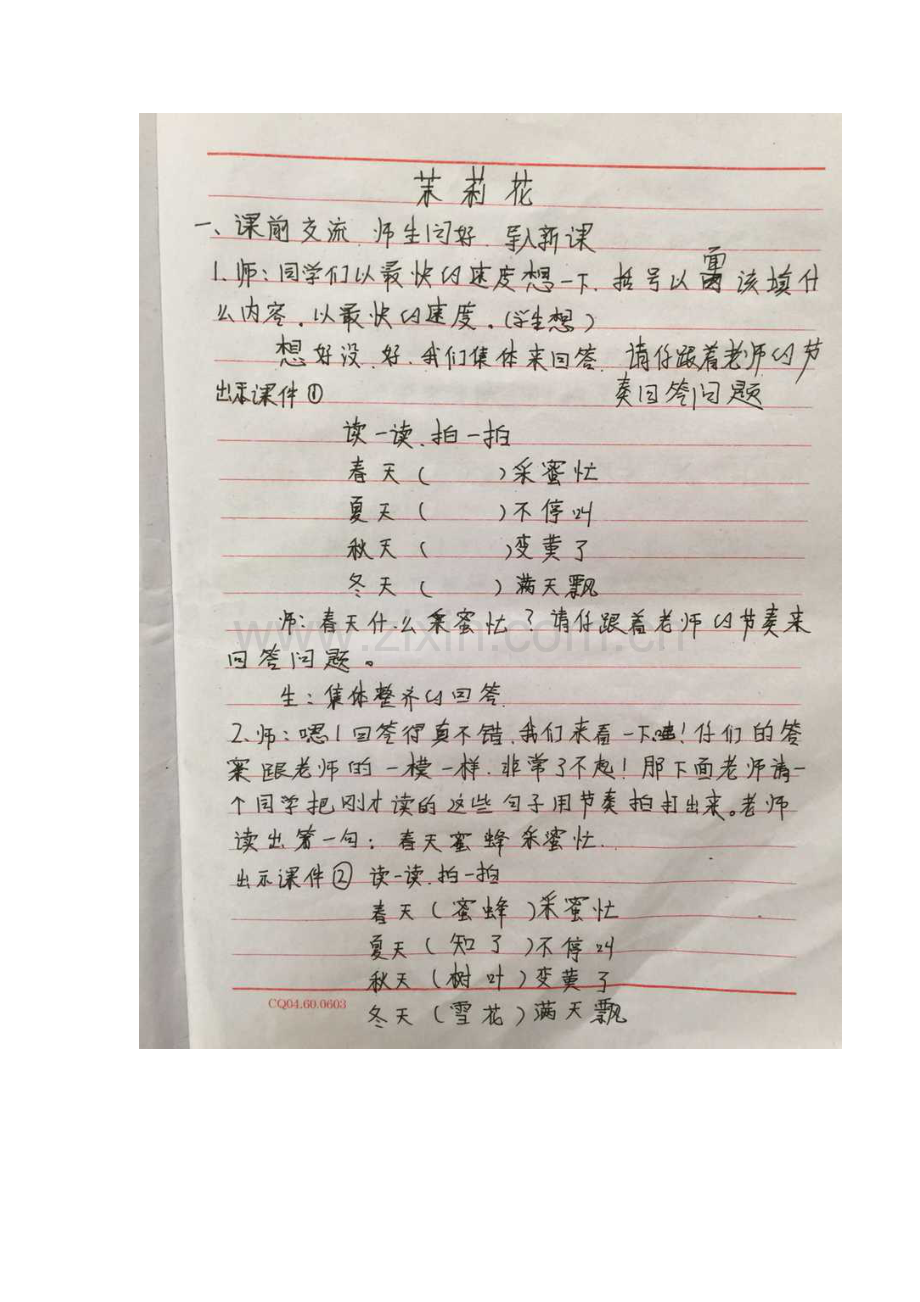 茉莉花
一、课前交流.师生问好.导入新课
1.师:同学们以最快的速度想一下.括号以面该填什
么内容.以最快的速度。(学生想)
想好没.好.我们集体来回答.请仔跟着老师的节
出示课件① 奏回答问题
读一读.拍一拍
春天( )采蜜忙
夏天( )不停叫
秋天( )变黄了
冬天( )满天飘
师:春天什么采蜜忙?请仔跟着老师的节奏来
回答问题。
生:集体整齐的回答.
2.师:嗯!回答得真不错.我们来看一下哇!仔们的答
案跟老师的一模一样.非常了不起!那下面老师请一
个同学把刚才读的这些句子用节奏拍打出来。老师
读出第一句:春天蜜蜂采蜜忙.
出示课件② 读一读.拍一拍
春天(蜜蜂)采蜜忙
夏天(知了)不停叫
秋天(树叶)变黄了
CQ04.60.0603
冬天(雪花)满天飘
www.zixin.com.cn